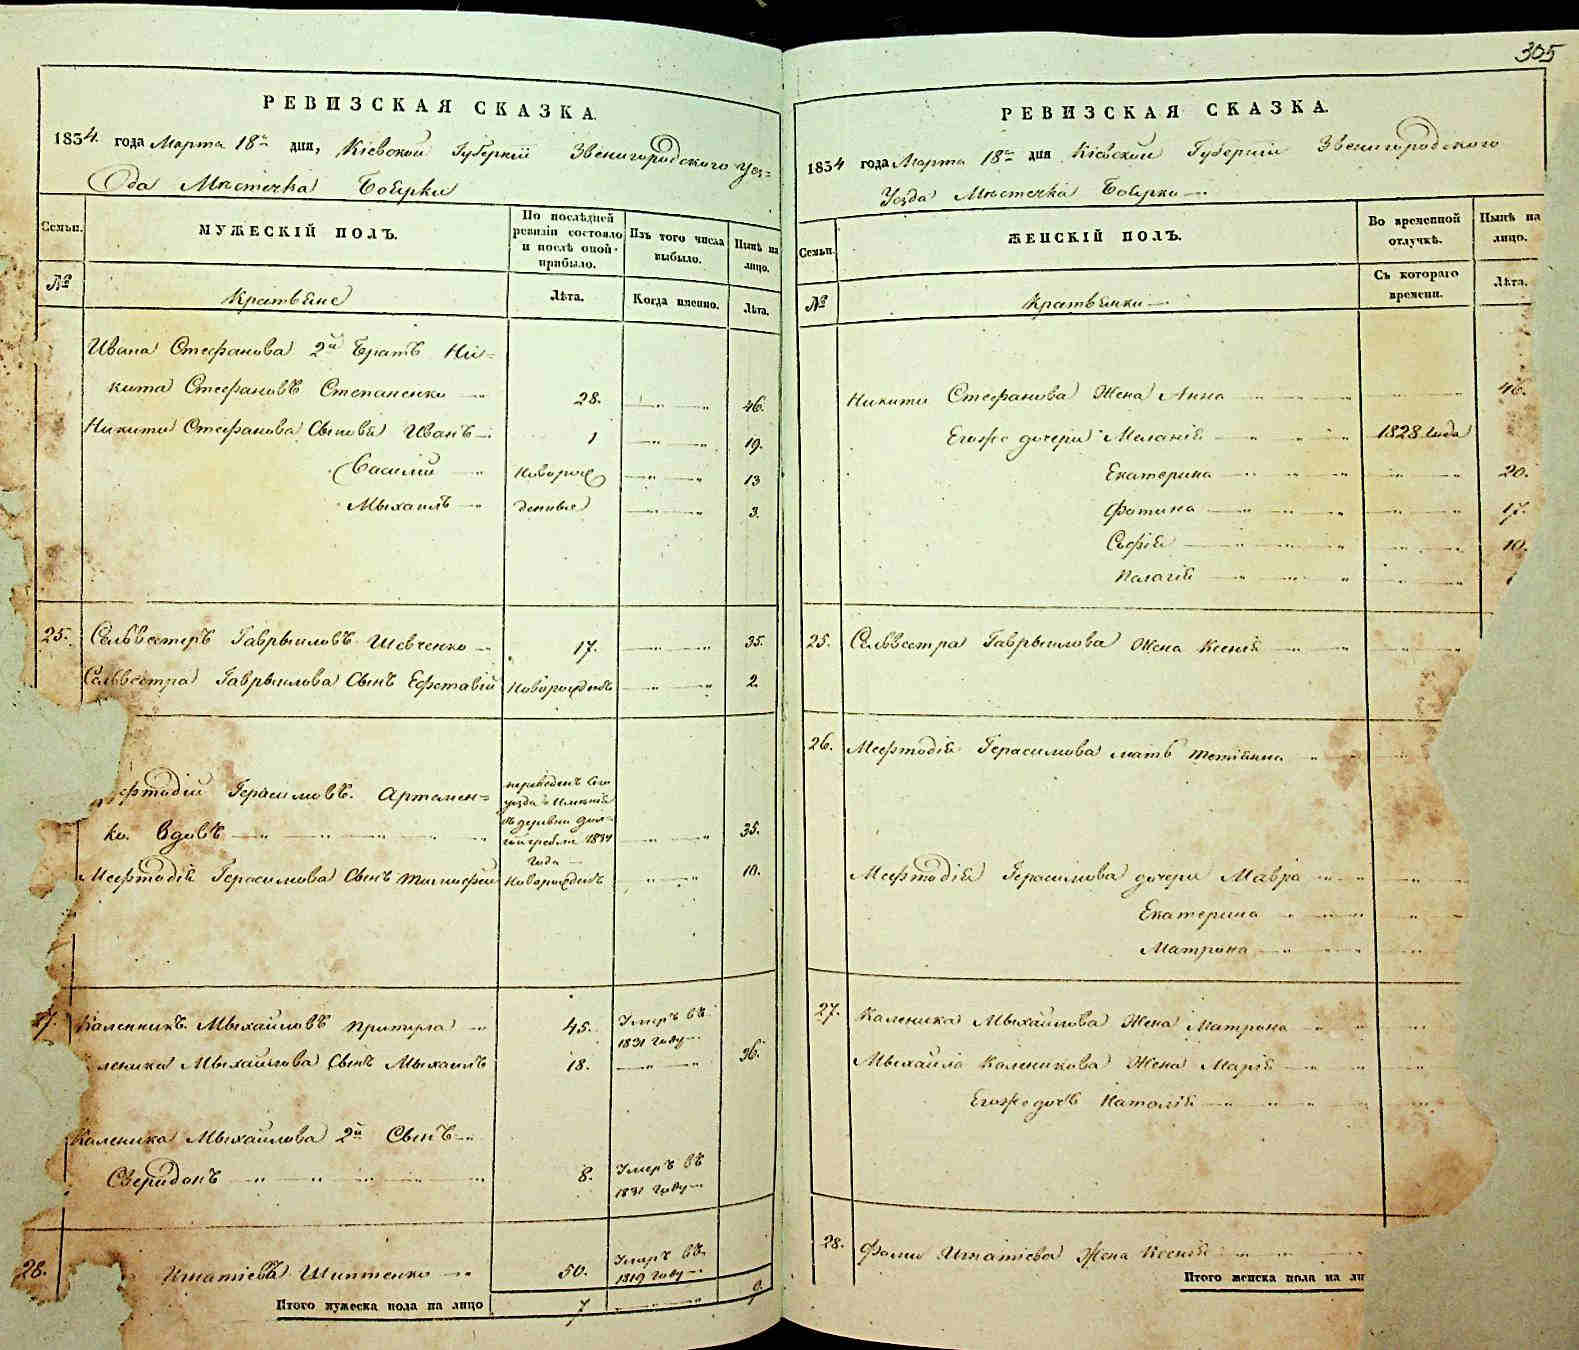 305
РЕВИЗСКАЯ СКАЗКА.
1834 года Марта 18го дня, Кіевской Губерніи Звенигородского Уез=
да Мѣстечка Боярки
Семьи.
МУЖЕСКІЙ ПОЛЪ.
По послѣдней
ревизіи состояло
и послѣ оной
прибыло.
Изъ того числа
выбыло.
Нынѣ на
лицо.
№
Лѣта.
Когда именно.
Лѣта.
Ивана Стефанова 2й Братъ Ни=
кита Стефановъ Степаненко 28. 46.
Никити Стефанова Сыновя Иванъ 1 19.
Василий Новорож 13
Мыхаилъ денные 3.
25. Сельвестеръ Гаврыиловъ Шевченко 17. 35.
Сельвестра Гаврыилова Сынъ Ефстафій Новорожденъ 2.
переведенъ
1834
года
фтодій Герасимовъ Артемен=
ко Вдовъ 35.
Мефтодія Герасимова Сынъ Тимофей Новорожденъ 10.
7. Каленникъ Мыхайловъ Притыга 45. Умеръ въ
1831 году
леника Мыхайлова Сынъ Мыхаилъ 18. 36.
Каленика Мыхайлова 2й Сынъ
Сверидонъ 8. Умеръ въ
1831 году
28. Игнатіевъ Шиптенко 50. Умеръ въ
1819 году
Итого мужеска пола на лицо 7 9.
РЕВИЗСКАЯ СКАЗКА.
1834 года Марта 18го дня Кіевской Губерніи Звенигородского
Уезда Мѣстечка Боярки
Семьи.
ЖЕНСКІЙ ПОЛЪ.
Во временной
отлучкѣ.
Нынѣ на
лицо.
№
Съ котораго
времени.
Лѣта.
Никити Стефанова Жена Анна 46.
Егоже дочери Меланія 1828 года
Екатерина 20.
Фотина 17.
Софія 10.
Палагія
25. Сельвестра Гаврыилова Жена Ксенія
26. Мефтодія Герасимова мать Тетіянна
Мефтодія Герасимова дочери Мавра
Екатерина
Матрона
27. Каленика Мыхайлова Жена Матрона
Мыхайла Каленикова Жена Марія
Егоже дочь Наталія
28. Фоми Игнатіева Жена Ксенія
Итого женска пола на ли